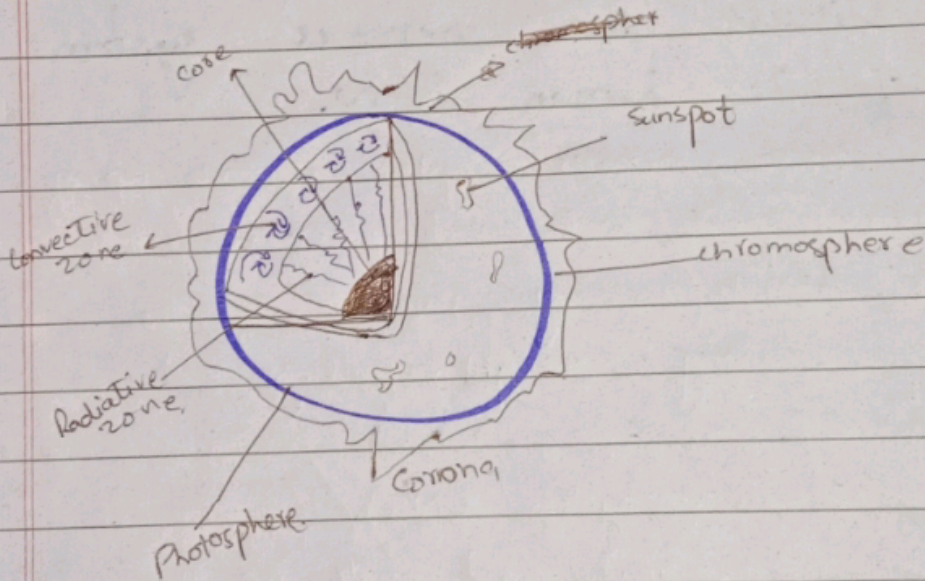 chromospher
core
sunspot
convective
zone
chromosphere
Radiative
zone
Corrona
Photosphere